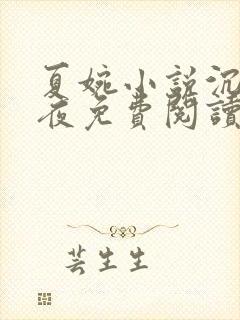 夏婉小說沉
夜免費閱讀
芸生生